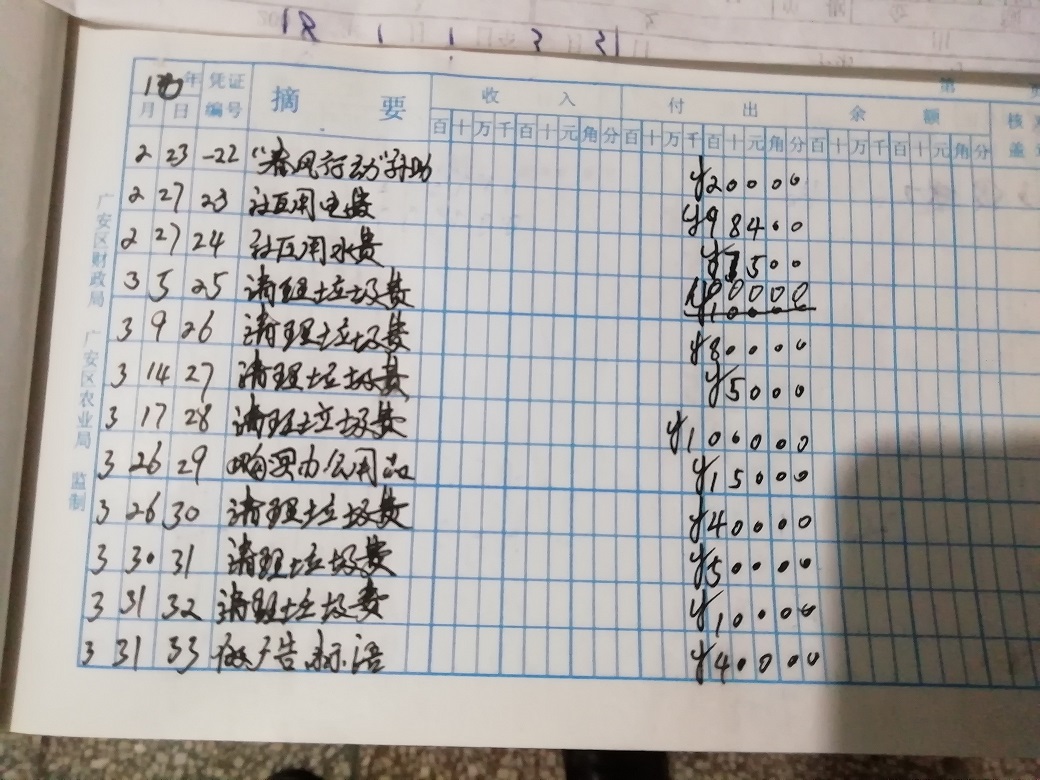 18 1 1 3 31
第 页
年 凭证 摘 要 收 入 付 出 余 额 核
月 日 编号 百十万千百十元角分 百十万千百十元角分 百十万千百十元角分 盖
2 23 -22 "春风行动"补助 ¥20000
2 27 23 社区用电费 ¥98400
2 27 24 社区用水费 ¥7500
3 5 25 清理垃圾费 ¥10000
3 9 26 清理垃圾费 ¥80000
3 14 27 清理垃圾费 ¥5000
3 17 28 清理垃圾费 ¥100000
3 26 29 购买办公用品 ¥15000
3 26 30 清理垃圾费 ¥40000
3 30 31 清理垃圾费 ¥50000
3 31 32 清理垃圾费 ¥10000
3 31 33 做广告标语 ¥40000
广安区财政局 广安区农业局 监制